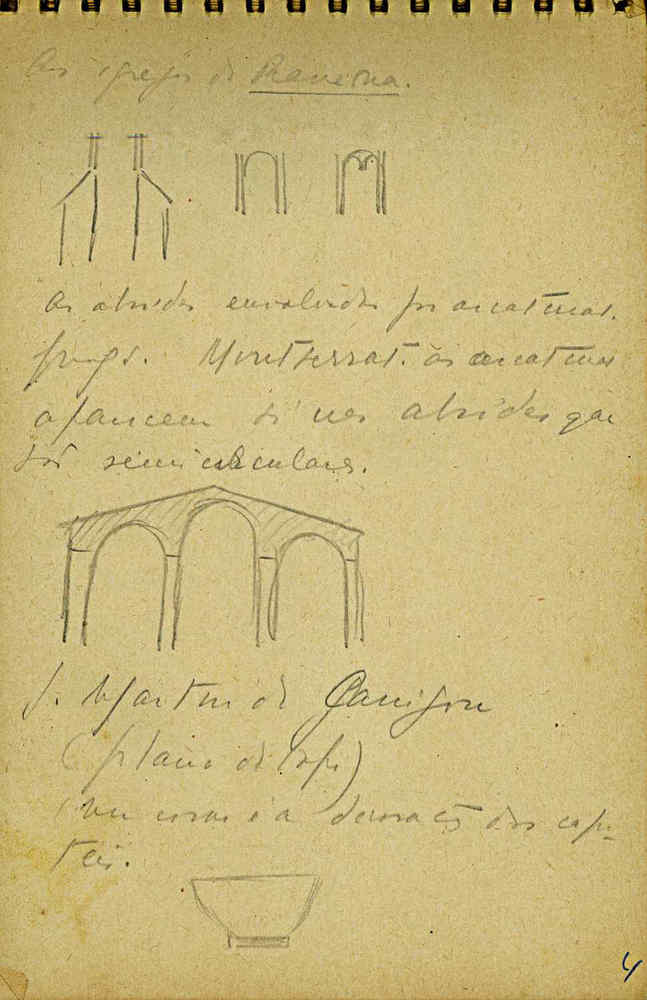 As igrejas de Ravenna.
As absides envolvidas por arcaturas.
Montserrat. as arcaturas
aparecem só nas absides que
são semicirculares.
S. Martin de Canigou
(plano de
a decoração dos capi-
teis.
4